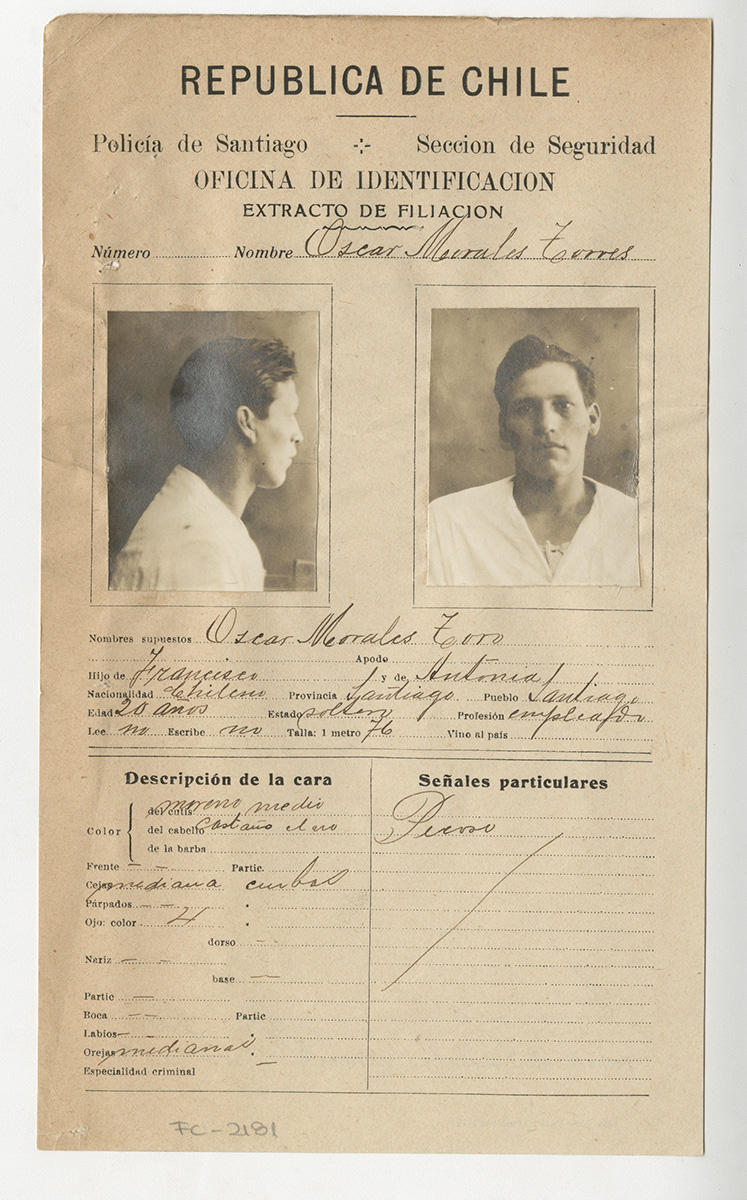 REPUBLICA DE CHILE
Policía de Santiago -:- Seccion de Seguridad
OFICINA DE IDENTIFICACION
EXTRACTO DE FILIACION
Número Nombre Oscar Morales Torres
Nombres supuestos Oscar Morales Toro
Apodo
Hijo de Francisco y de Antonia
Nacionalidad Chileno Provincia Santiago Pueblo Santiago
Edad 20 años Estado soltero Profesión empleado
Lee no Escribe no Talla: 1 metro 76 Vino al país
Descripción de la cara
Color
del cutis moreno medio
del cabello castaño claro
de la barba
Frente — — Partic.
Cejas mediana curbas
Párpados — —
Ojo: color 4
dorso —
Nariz — —
base —
Partic —
Boca — — Partic
Labios —
Orejas medianas
Especialidad criminal
Señales particulares
Pecoso
FC-2181